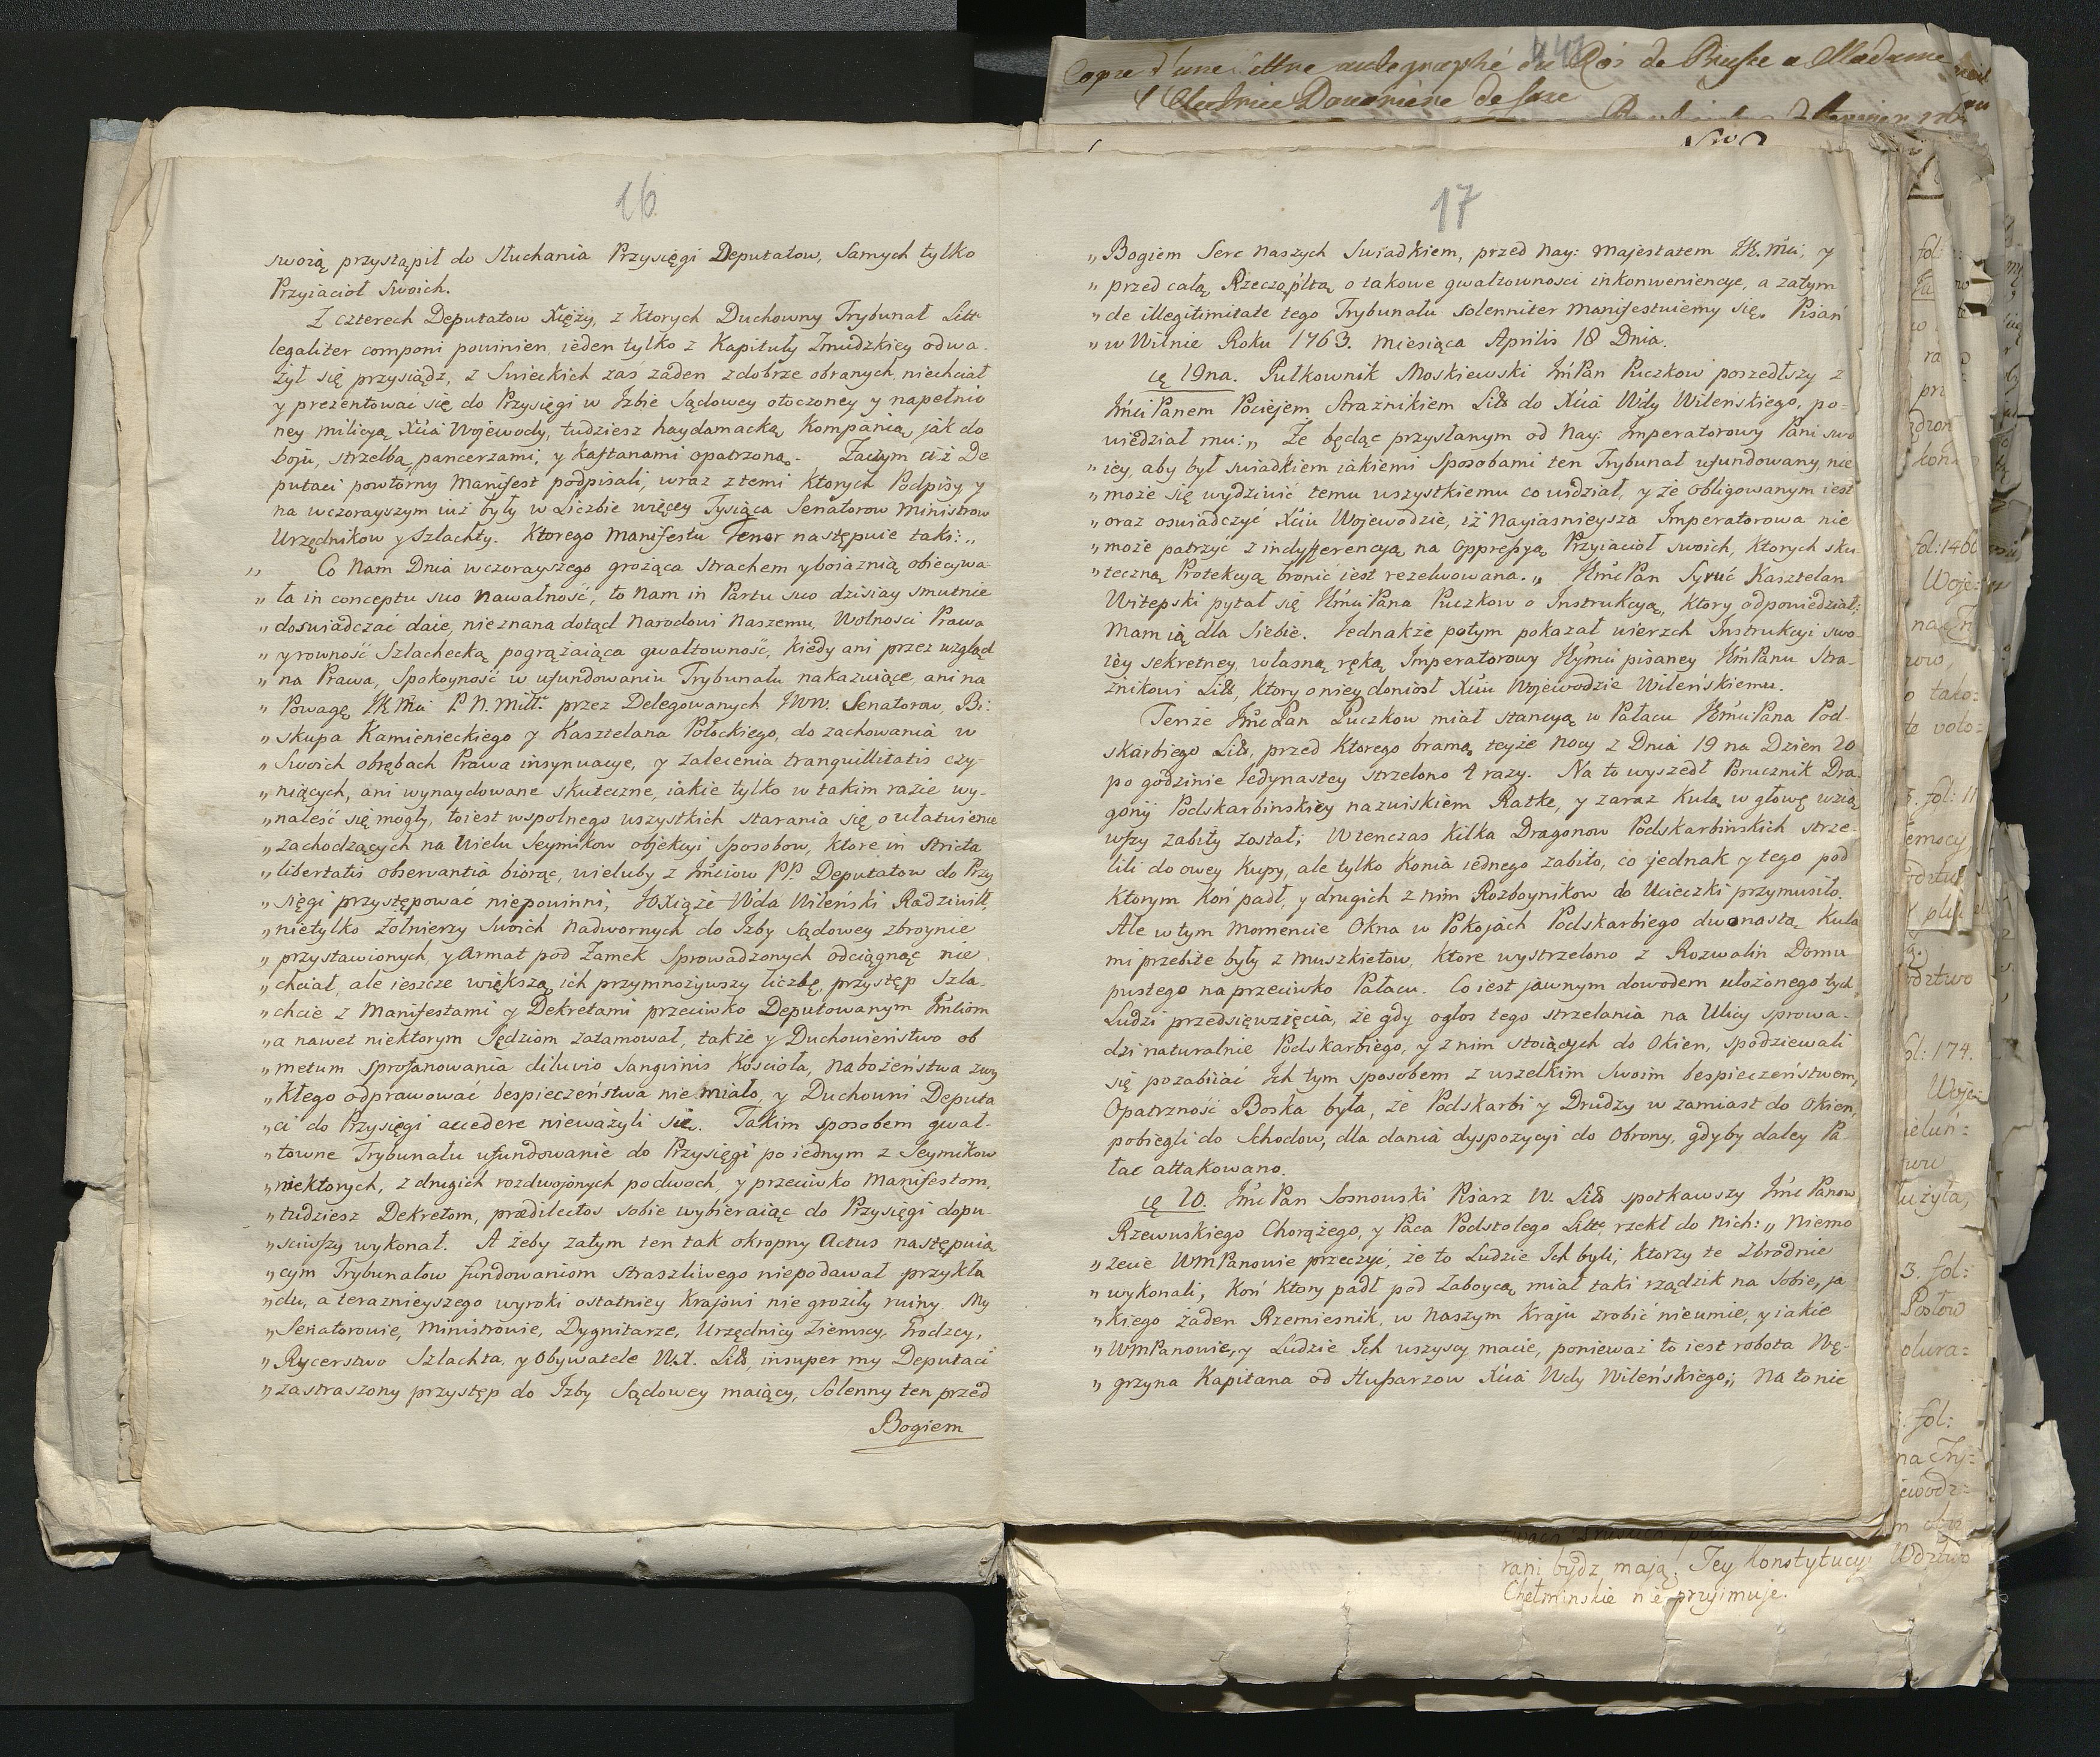 16
swoią przystąpił do słuchania Przysięgi Deputatow, samych tylko
Przyiacioł Swoich.
Z czterech Deputatow Xięży, z ktorych Duchowny Trybunał Litt
legaliter componi powinien, ieden tylko z Kapituły Zmudzkiey odwa-
żył się przysiądz, z Swieckich zas zaden z dobrze obranych niechciał
y prezentować się do Przysięgi w Izbie Sądowey otoczoney y napełnio
ney milicyą Xcia Wojewody, tudziesz haydamacką Kompanią, jak do
boju, strzelbą, pancerzami, y kaftanami opatrzoną. Zaczym ciż De
putaci powtorny Manifest podpisali, wraz z temi ktorych Podpisy y
na wczorayszym iuż były w Liczbie więcey Tysiąca Senatorow Ministrow
Urzędnikow y Szlachty. Ktorego Manifestu Tenor następuie taki: „
„ Co Nam Dnia wczorayszego grożąca strachem y boiaznią obiecywa-
„ ła in conceptu suo Nawałność, to Nam in Partu suo dzisiay smutnie
„ doswiadczać daie, nieznana dotąd Narodowi Naszemu, Wolnosci Prawo
„ y rowność Szlachecką pogrążaiąca gwałtowność, kiedy ani przez wzgląd
„ na Prawa, Spokoyność w ufundowaniu Trybunału nakazuiące, ani na
„ Powagę JK Mci P. N. Miłł. przez Delegowanych JWW. Senatorow, Bi:
„ skupa Kamienieckiego y Kasztelana Połockiego, do zachowania w
„ Swoich obrębach Prawa insynuacye, y zalecenia tranquillitatis czy-
„ niących, ani wynaydowane skuteczne, iakie tylko w takim razie wy-
„ naleść się mogły, toiest wspolnego wszystkich starania się o ułatwienie
„ zachodzących na Wielu Seymikow objekcyi sposobow, ktore in stricta
„ libertatis observantia biorąc, wieluby z Imciow PP. Deputatow do Przy
„ sięgi przystępować niepowinni, JO Xiąże Wda Wileński Radziwiłł,
„ nietylko żołnierzy Swoich Nadwornych do Izby Sądowey zbroynie
„ przystawionych, y Armat pod Zamek Sprowadzonych odciągnąc nie
„ chciał, ale ieszcze większą ich przymnożywszy liczbę, przystęp Szla-
„ chcie z Manifestami y Dekretami przeciwko Deputowanym Imciom
„ a nawet niektorym Sędziom zatamował, także y Duchowieństwo ob
„ metum sprofanowania diluvio Sanguinis Kościoła, Nabożeństwa zwy
„ kłego odprawować bespieczeństwa nie miało, y Duchowni Deputa
„ ci do Przysięgi accedere nieważyli się. Takim sposobem gwał-
„ towne Trybunału ufundowanie do Przysięgi po iednym z Seymikow
„ niektorych, z drugich rozdwojonych po dwoch, y przeciwko Manifestom,
„ tudziesz Dekretom, prædilectos sobie wybieraiąc do Przysięgi dopu-
„ sciwszy wykonał. A żeby zatym ten tak okropny Actus następuią
„ cym Trybunałow fundowaniom straszliwego niepodawał przykła
„ du, a teraznieyszego wyroki ostatniey Krajowi nie groziły ruiny. My
„ Senatorowie, Ministrowie, Dygnitarze, Urzędnicy Ziemscy, Grodzcy,
„ Rycerstwo Szlachta, y Obywatele W.X. Litt, insuper my Deputaci
„ zastraszony przystęp do Izby Sądowey maiący, Solenny ten przed
Bogiem
17
„ Bogiem Serc Naszych Swiadkiem, przed Nay: Majestatem JK. Mci, y
„ przed całą Rzecząpltą o takowe gwałtowności inkonweniencye, a zatym
„ de illegitimitate tego Trybunału solenniter manifestuiemy się. Pisań
„ w Wilnie Roku 1763. Miesiąca Aprilis 18 Dnia.
19na. Pułkownik Moskiewski ImPan Puczkow poszedłszy z
Imci Panem Pociejem Strażnikiem Litt do Xcia Wdy Wileńskiego, po-
wiedział mu: „ Że będąc przysłanym od Nay: Imperatorowy Pani swo
„ iey, aby był swiadkiem iakiemi sposobami ten Trybunał ufundowany, nie
„ może się wydziwić temu wszystkiemu co widział, y że obligowanym iest
„ oraz oswiadczyć Xciu Wojewodzie, iż Nayiasnieysza Imperatorowa nie
„ może patrzyć z indyfferencyą na Oppressyą Przyiacioł swoich, ktorych sku-
„ teczną Protekcyą bronić iest rezolwowana. „ Imc Pan Syruć Kasztelan
Witepski pytał się Imci Pana Puczkow o Instrukcyą, ktory odpowiedział:
Mam ią dla Siebie. Jednakże potym pokazał wierzch Instrukcyi swo-
iey sekretney, własną ręką Imperatorowy Jeymci pisaney ImPanu Stra-
żnikowi Litt, ktory o niey doniosł Xciu Wojewodzie Wileńskiemu.
Tenże Imc Pan Puczkow miał stancyą w Pałacu Imci Pana Pod-
skarbiego Litt, przed ktorego bramą teyże Nocy z Dnia 19 na Dzien 20
po godzinie Jedynastey strzelono 4 razy. Na to wyszedł Porucznik Dra-
gonij Podskarbinskiey nazwiskiem Ratke, y zaraz kulą w głowę wzią
wszy zabity został; Wtenczas kilka Dragonow Podskarbinskich strze-
lili do owey kupy, ale tylko Konia iednego zabito, co jednak y tego pod
ktorym Koń padł, y drugich z nim Rozboynikow do Ucieczki przymusiło.
Ale w tym momencie Okna w Pokojach Podskarbiego dwonastą kula
mi przebite były z muszkietow, ktore wystrzelono z Rozwalin Domu
pustego na przeciwko Pałacu. Co iest jawnym dowodem ułożonego tych
Ludzi przedsięwzięcia, że gdy ogłos tego strzelania na Ulicy sprowa-
dzi naturalnie Podskarbiego, y z nim stoiących do Okien, spodziewali
się pozabiiać Ich tym sposobem z wszelkim Swoim bespieczeństwem,
Opatrzność Boska była, że Podskarbi y Drudzy w zamiast do Okien,
pobiegli do Schodow, dla dania dyspozycyi do Obrony, gdyby daley Pa
łac attakowano.
20. Imc Pan Sosnowski Pisarz W. Litt spotkawszy Imc Panow
Rzewuskiego Chorążego, y Paca Podstolego Litte, rzekł do Nich: „ Niemo
„ żecie WmPanowie przeczyć, że to Ludzie Ich byli, ktorzy te Zbrodnie
„ wykonali, Koń ktory padł pod Zaboycą, miał taki rządzik na Sobie, ja
„ kiego żaden Rzemiesnik, w Naszym Kraju zrobić nieumie, y iakie
„ WmPanowie, y Ludzie Ich wszyscy macie, ponieważ to iest robota Wę-
„ grzyna Kapitana od Hussarzow Xcia Wdy Wileńskiego; „ Na to nic
Copie d'une lettre autographé du Roi de Prusse a Madame
l'Electrice Douariere de Saxe
rani bydz mają. Tey Konstytucyi Wdztwo
Chełminskie nie przyimuje.